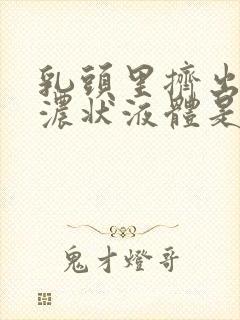 乳頭里擠出
濃狀液體是
鬼才燈哥